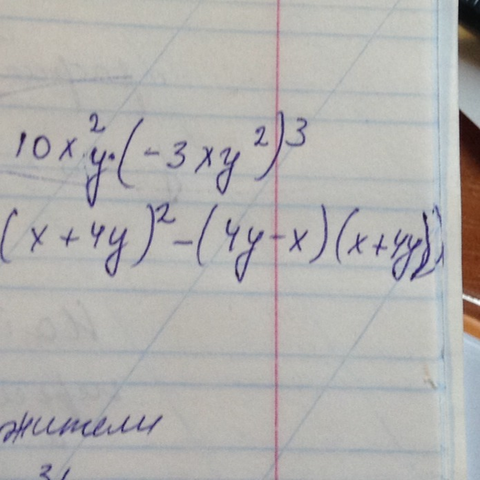 10x²y·(-3xy²)³
(x+4y)²-(4y-x)(x+4y)
жители